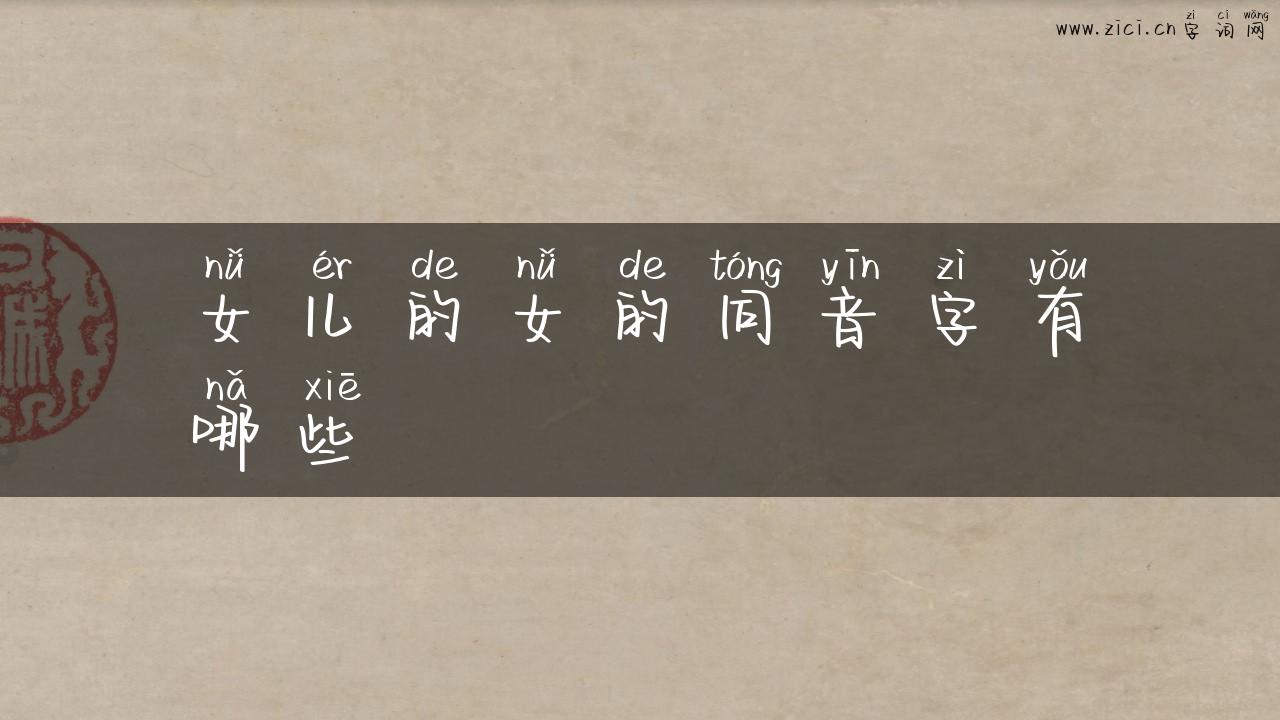 www.zici.cn 字词网
zì cí wǎng
nǚ ér de nǚ de tóng yīn zì yǒu
女儿的女的同音字有
nǎ xiē
哪些